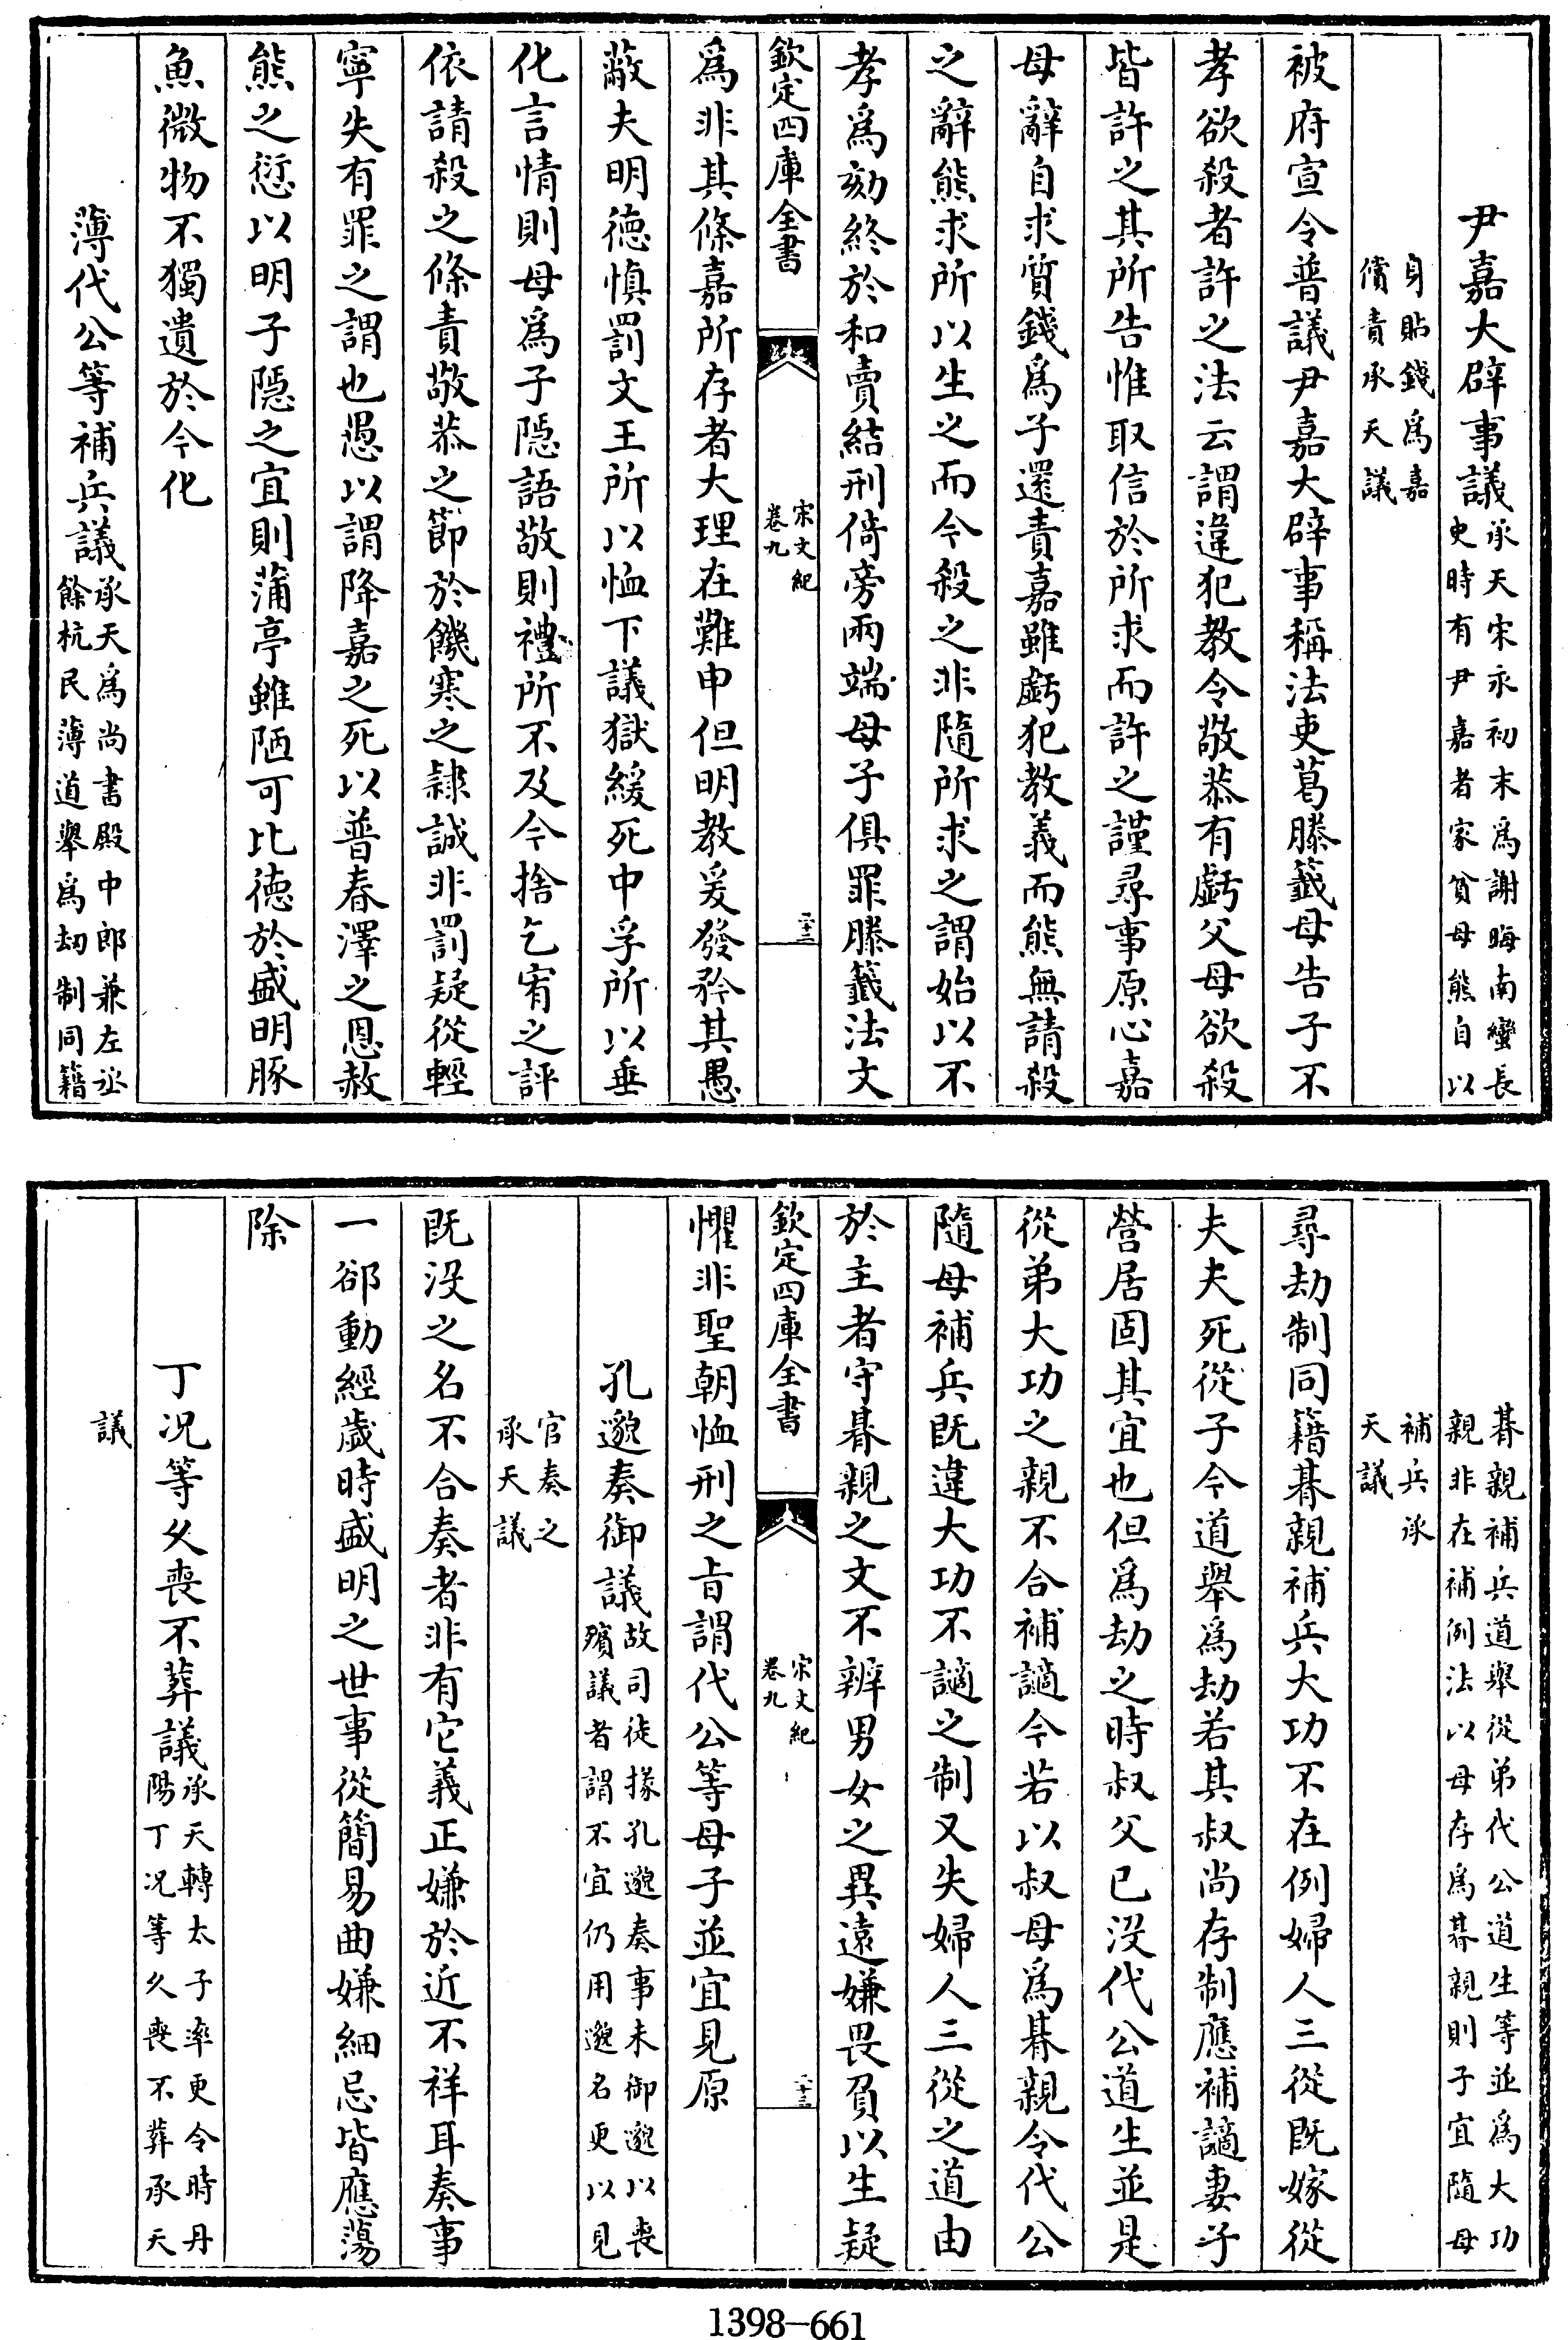 尹嘉大辟事議承天宋永初末為謝晦南蠻長
史時有尹嘉者家貧母熊自以
身貼錢為嘉
償責承天議
被府宣令普議尹嘉大辟事稱法吏葛滕籤母告子不
孝欲殺者許之法云謂違犯教令敬恭有虧父母欲殺
皆許之其所告惟取信於所求而許之謹尋事原心嘉
母辭自求質錢為子還責嘉雖虧犯教義而熊無請殺
之辭熊求所以生之而今殺之非隨所求之謂始以不
孝為劾終於和賣結刑倚旁兩端母子俱罪滕籤法文
欽定四庫全書
宋文紀
卷九
二十二
為非其條嘉所存者大理在難申但明教爰發矜其愚
蔽夫明徳慎罰文王所以恤下議獄緩死中孚所以垂
化言情則母為子隠語敬則禮所不及今捨乞宥之評
依請殺之條責敬恭之節於饑寒之隷誠非罰疑從輕
寧失有罪之謂也愚以謂降嘉之死以普春澤之恩赦
熊之愆以明子隠之宜則蒲亭雖陋可比徳於盛明豚
魚微物不獨遺於今化
薄代公等補兵議承天為尚書殿中郎兼左丞
餘杭民薄道舉為劫制同籍
朞親補兵道舉從弟代公道生等並為大功
親非在補例法以母存為朞親則子宜隨母
補兵承
天議
尋劫制同籍朞親補兵大功不在例婦人三從既嫁從
夫夫死從子今道舉為劫若其叔尚存制應補謫妻子
營居固其宜也但為劫之時叔父已沒代公道生並是
從弟大功之親不合補謫今若以叔母為朞親令代公
隨母補兵既違大功不謫之制又失婦人三從之道由
於主者守朞親之文不辨男女之異遠嫌畏負以生疑
欽定四庫全書
宋文紀
卷九
二十三
懼非聖朝恤刑之旨謂代公等母子並宜見原
孔邈奏御議故司徒掾孔邈奏事未御邈以喪
殯議者謂不宜仍用邈名更以見
官奏之
承天議
既沒之名不合奏者非有它義正嫌於近不祥耳奏事
一郤動經歲時盛明之世事從簡易曲嫌細忌皆應蕩
除
丁况等久喪不葬議承天轉太子率更令時丹
陽丁况等久喪不葬承天
議
1398-661